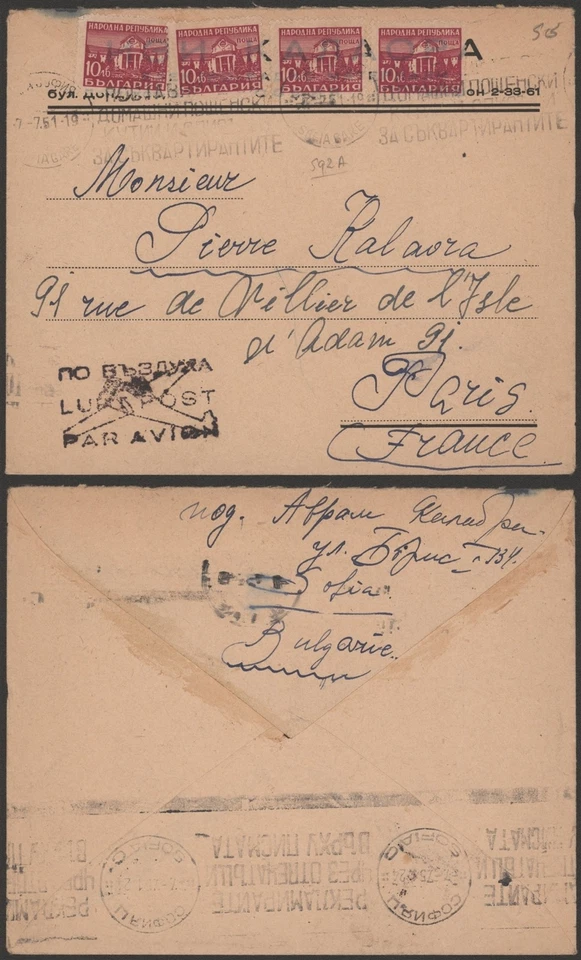 НАРОДНА РЕПУБЛИКА НАРОДНА РЕПУБЛИКА НАРОДНА РЕПУБЛИКА НАРОДНА РЕПУБЛИКА
ПОЩА ПОЩА ПОЩА ПОЩА
10 ЛВ 10 ЛВ 10 ЛВ 10 ЛВ
БЪЛГАРИЯ БЪЛГАРИЯ БЪЛГАРИЯ БЪЛГАРИЯ
А
бул. 2-33-61
-7.51-19
ДОМАШНИ ПОЩЕНСКИ
ДОМАШНИ ПОЩЕНСКИ
КУТИИ
ЗА СЪКВАРТИРАНТИТЕ
ЗА СЪКВАРТИРАНТИТЕ
592A
Monsieur
Pierre Kalaora
91 rue de Villier de l'Isle
d'Adam 91.
Paris
France
ПО ВЪЗДУХА
LUFTPOST
PAR AVION
под. Аврам
ул. Борис I
Sofia
Bulgarie
РЕКЛАМИРАЙТЕ
ЧРЕЗ ОТПЕЧАТЪЦИ
ВЪРХУ ПИСМАТА
СОФИЯ
SOFIA